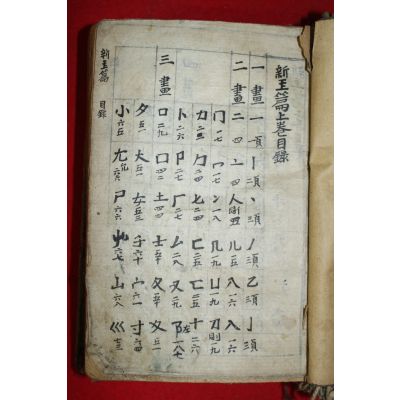 新玉篇上卷目錄
一畫 一 一項 丨 二項 丶 項 丿 三項 乙 三項 亅 三項
二畫 二 四 亠 四 人 四 儿 一五 入 一六 八 一六
冂 一七 冖 一七 冫 一八 几 一九 凵 一九 刀 一九
力 二三 勹 二四 匕 二四 匚 二五 匸 二五 十 二六
卜 二六 卩 二七 厂 二七 厶 二八 又 二九 阝 左 一八七
三畫 口 二九 囗 四二 土 四四 士 五十 夂 五十 夊 五一
夕 五一 大 五一 女 五三 子 六十 宀 六一 寸 六四
小 六五 尢 尸 六六 屮 六七 山 六八 巛 七三
新玉篇 目錄